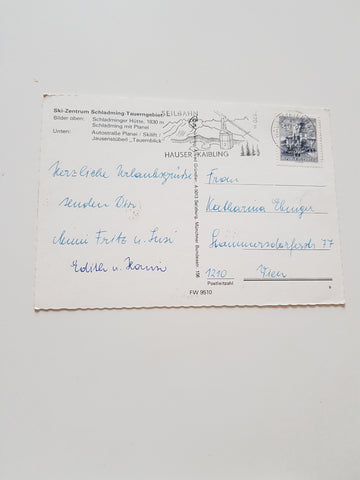 Ski-Zentrum Schladming-Tauerngebiet
Bilder oben: Schladminger Hütte, 1830 m
Schladming mit Planei
Unten: Autostraße Planei / Skilift /
Jausenstüberl „Tauernblick"
SEILBAHN
HAUSER KAIBLING
Herzliche Urlaubsgrüße
senden Dir
Fritz u. Susi
Edith u. Hansi
Frau
Katharina
Stammersdorferstr 77
1210 Wien
Postleitzahl
FW 9510